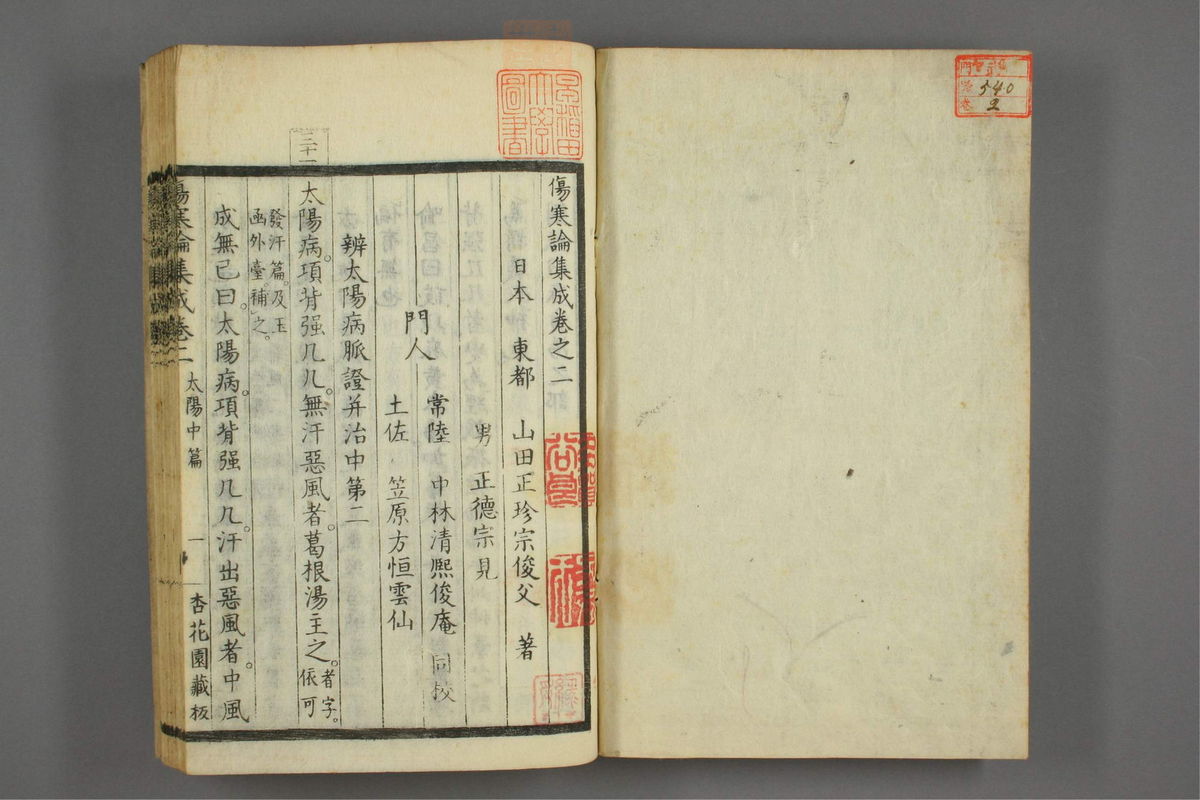 門
號 540
卷 2
早稲田
大學
圖書
傷寒論集成卷之二
日本 東都 山田正珍宗俊父 著
男 正德宗見
門人 常陸 中林清熙俊庵 同校
土佐 笠原方恒雲仙
辨太陽病脈證并治中第二
三十一
太陽病。項背强几几。無汗惡風者。葛根湯主之。者字。依可
發汗篇。及玉
函外臺。補之。
成無已曰。太陽病。項背强几几。汗出惡風者。中風
傷寒論集成卷二 太陽中篇 一 杏花園藏板